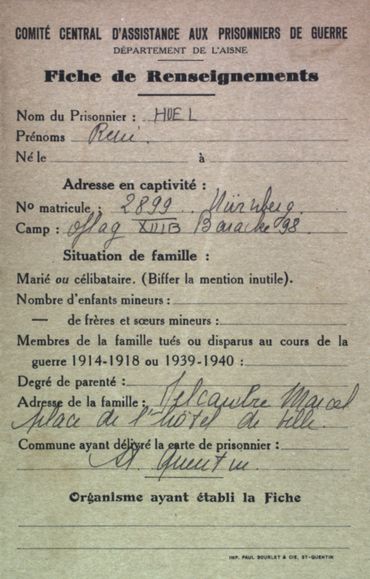 COMITÉ CENTRAL D'ASSISTANCE AUX PRISONNIERS DE GUERRE
DÉPARTEMENT DE L'AISNE
Fiche de Renseignements
Nom du Prisonnier : HUEL
Prénoms René
Né le à
Adresse en captivité :
No matricule : 2899 Nürnberg
Camp : Oflag XIIIB Baracke 98
Situation de famille :
Marié ou célibataire. (Biffer la mention inutile).
Nombre d'enfants mineurs :
— de frères et sœurs mineurs :
Membres de la famille tués ou disparus au cours de la
guerre 1914-1918 ou 1939-1940 :
Degré de parenté :
Adresse de la famille : Marcel
place de l'hôtel de ville.
Commune ayant délivré la carte de prisonnier :
St. Quentin.
Organisme ayant établi la Fiche
IMP. PAUL BOURLET & CIE, ST-QUENTIN